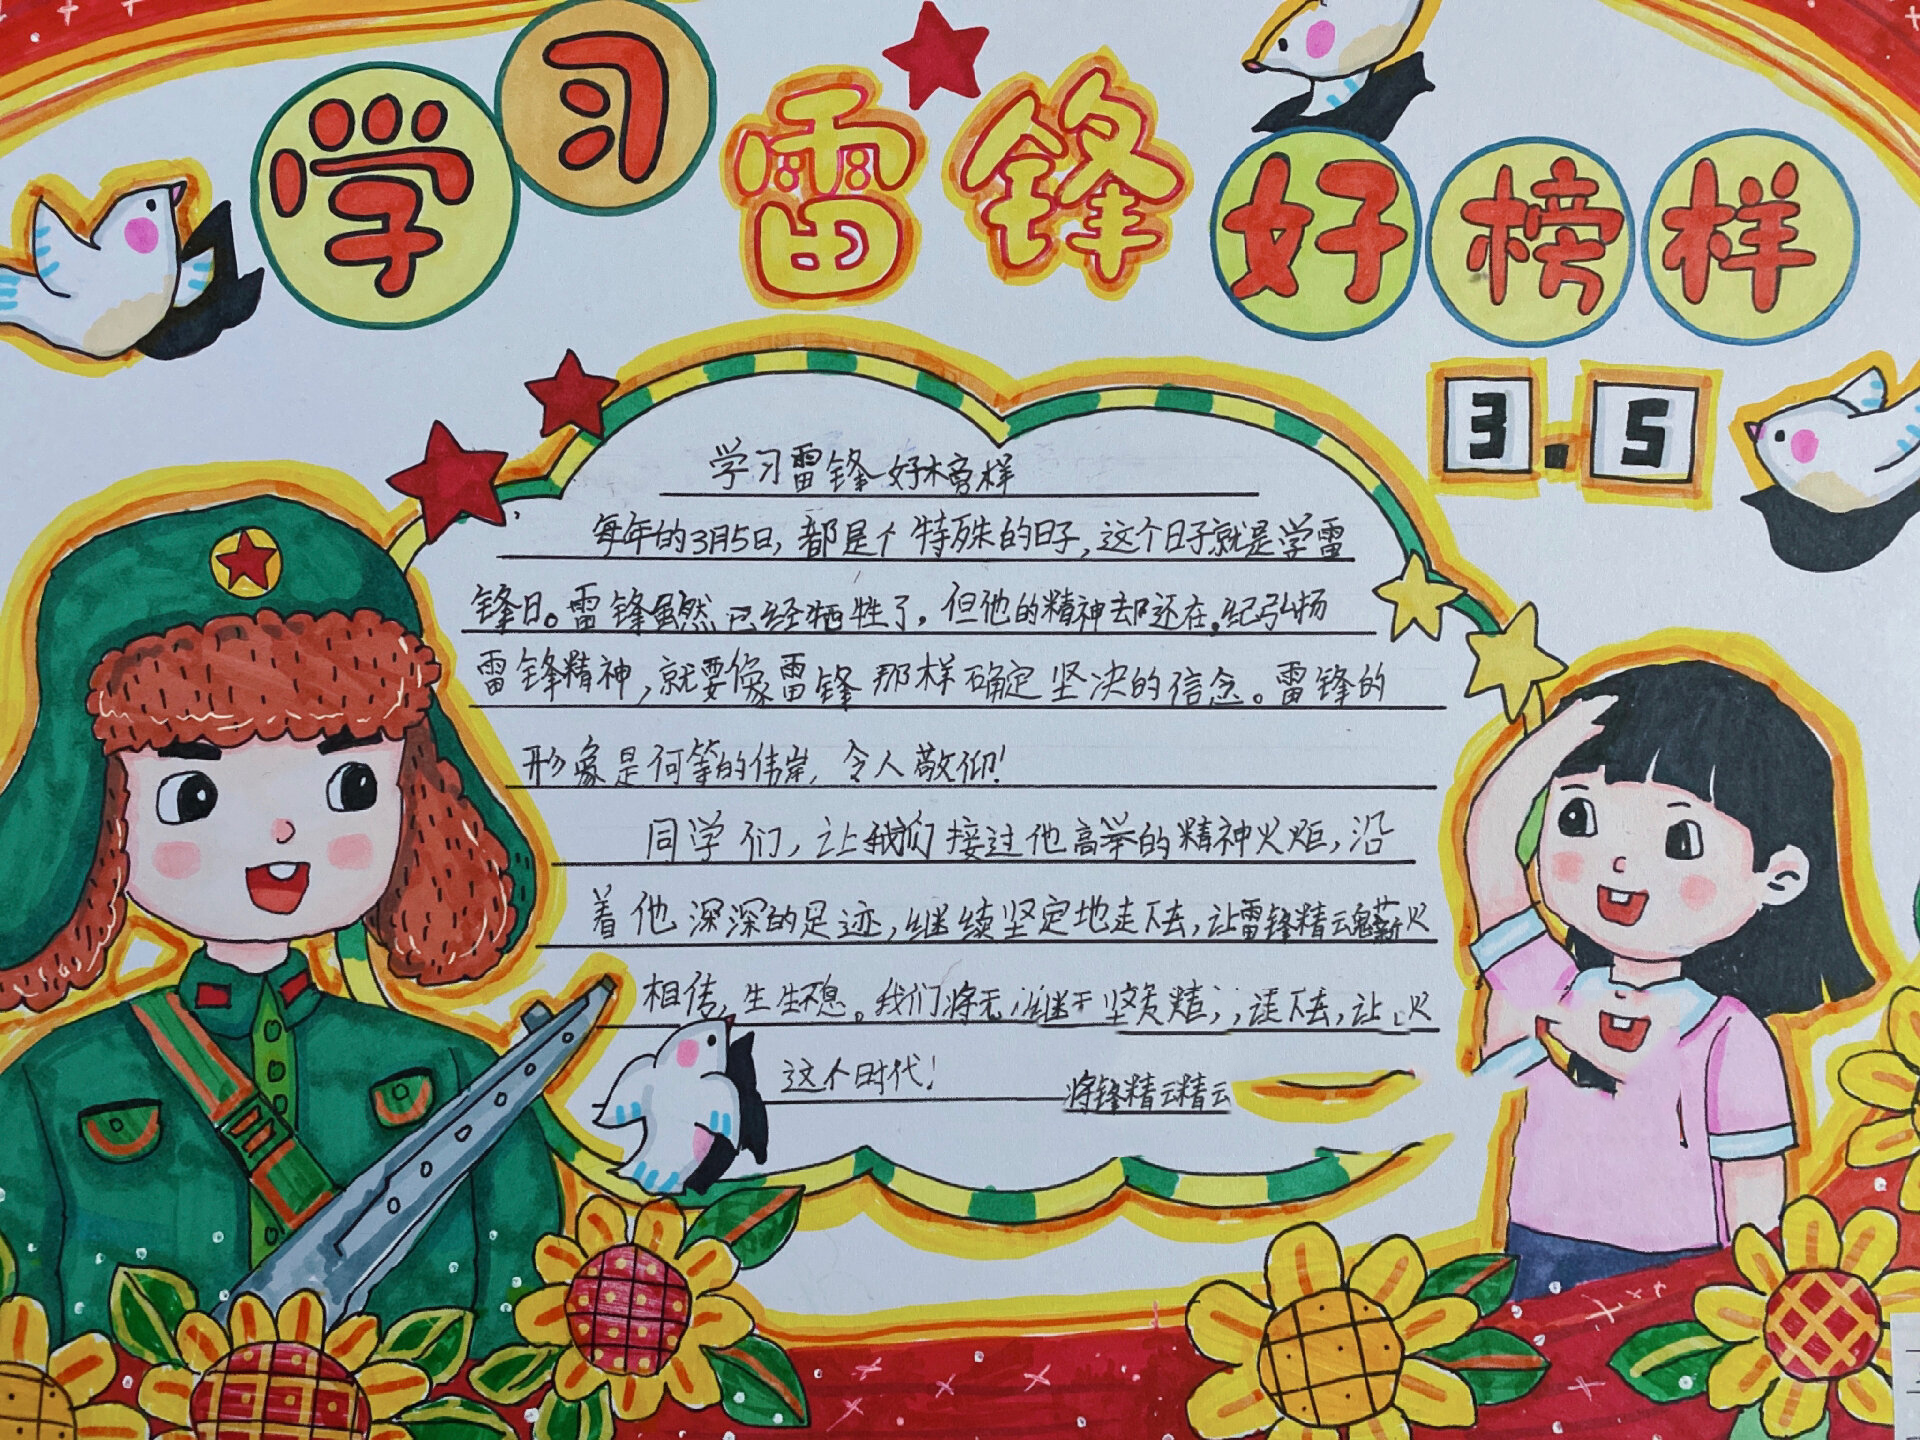 学习雷锋好榜样
3.5
学习雷锋好榜样
每年的3月5日，都是个特殊的日子，这个日子就是学雷
锋日。雷锋虽然已经牺牲了，但他的精神却还在。纪弘扬
雷锋精神，就要像雷锋那样确定坚决的信念。雷锋的
形象是何等的伟岸，令人敬仰！
同学们，让我们接过他高举的精神火炬，沿
着他深深的足迹，继续坚定地走下去，让雷锋精魂薪火
相传，生生不息。我们将无 走下去，让 火
这个时代！
锋精云精云